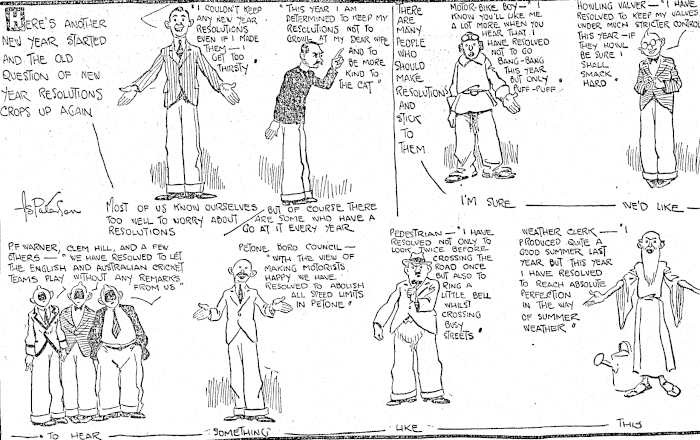 HERE'S ANOTHER
NEW YEAR STARTED
AND THE OLD
QUESTION OF NEW
YEAR RESOLUTIONS
CROPS UP AGAIN
"I COULDN'T KEEP
ANY NEW YEAR
RESOLUTIONS
EVEN IF I MADE
THEM — I
GET TOO
THIRSTY"
"THIS YEAR I AM
DETERMINED TO KEEP MY
RESOLUTIONS NOT TO
GROWL AT MY DEAR WIFE
AND TO
BE MORE
KIND TO
THE CAT"
MOST OF US KNOW OURSELVES
TOO WELL TO WORRY ABOUT
RESOLUTIONS
BUT OF COURSE THERE
ARE SOME WHO HAVE A
GO AT IT EVERY YEAR
THERE
ARE
MANY
PEOPLE
WHO
SHOULD
MAKE
RESOLUTIONS
AND
STICK
TO
THEM
MOTOR-BIKE BOY — "I
KNOW YOU'LL LIKE ME
A LOT MORE WHEN YOU
HEAR THAT I
HAVE RESOLVED
NOT TO GO
BANG-BANG
THIS YEAR
BUT ONLY
PUFF-PUFF"
HOWLING VALVER — "I HAVE
RESOLVED TO KEEP MY VALVES
UNDER MUCH STRICTER CONTROL
THIS YEAR — IF
THEY HOWL
BE SURE I
SHALL
SMACK
HARD"
I'M SURE — WE'D LIKE —
P.F. WARNER, CLEM HILL, AND A FEW
OTHERS — "WE HAVE RESOLVED TO LET
THE ENGLISH AND AUSTRALIAN CRICKET
TEAMS PLAY WITHOUT ANY REMARKS
FROM US"
PETONE BORO COUNCIL —
"WITH THE VIEW OF
MAKING MOTORISTS
HAPPY WE HAVE
RESOLVED TO ABOLISH
ALL SPEED LIMITS
IN PETONE"
PEDESTRIAN — "I HAVE
RESOLVED NOT ONLY TO
LOOK TWICE BEFORE
CROSSING THE
ROAD ONCE
BUT ALSO TO
RING A
LITTLE BELL
WHILST
CROSSING
BUSY
STREETS"
WEATHER CLERK — "I
PRODUCED QUITE A
GOOD SUMMER LAST
YEAR BUT THIS YEAR
I HAVE RESOLVED
TO REACH ABSOLUTE
PERFECTION
IN THE WAY
OF SUMMER
WEATHER"
— TO HEAR — SOMETHING — LIKE — THIS